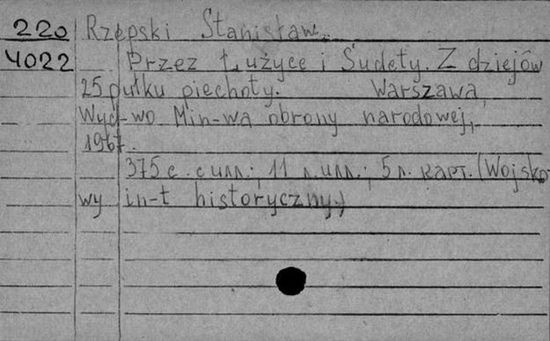 220 Rzepski Stanisław.
4022 Przez Łużyce i Sudety. Z dziejów
25 pułku piechoty. Warszawa,
Wyd-wo Min-wa obrony narodowej,
1967.
375 с. с илл.; 11 л. илл.; 5 л. карт. (Wojsko-
wy in-t historyczny.)